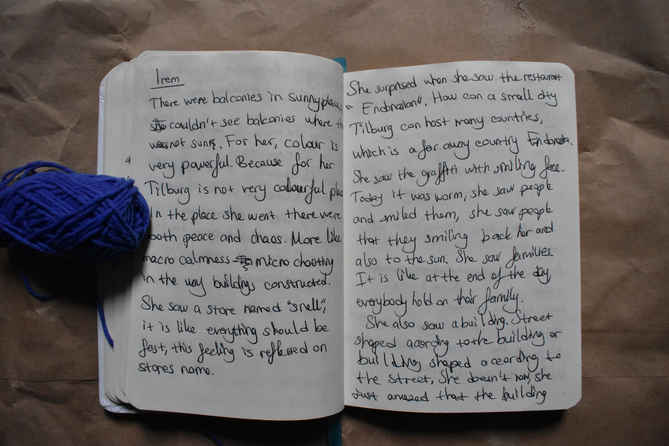 Irem
There were balconies in sunny places
She couldn't see balconies where
was not sunny. For her, colour is
very powerful. Because for her
Tilburg is not very colourful
In the place she went there were
both peace and chaos. More like
macro calmness micro
in the way buildings constructed.
She saw a store named "snell",
it is like everything should be
fast, this feeling is reflected on
stores name.
She surprised when she saw the restaurant
" ". How can a small city
Tilburg can host many countries,
which is a far away country
She saw the graffiti with smiling face.
Today it was warm, she saw people
and smiled them, she saw people
that they smiling back her and
also to the sun. She saw families
It is like at the end of the day
everybody hold on their family.
She also saw a building. Street
shaped acording to the building or
building shaped acording to
the street, she doesn't now, she
Just amazed that the building